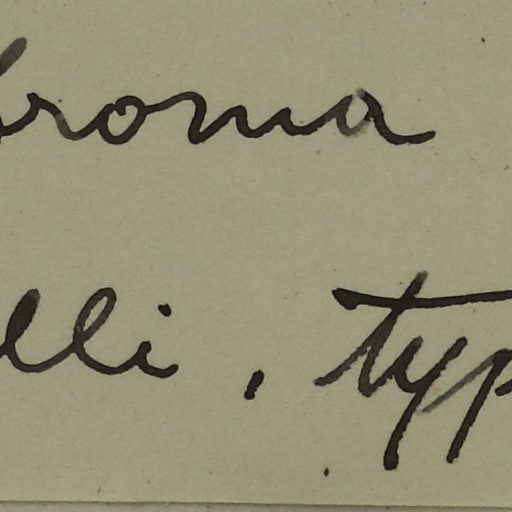 broma
lli, typ